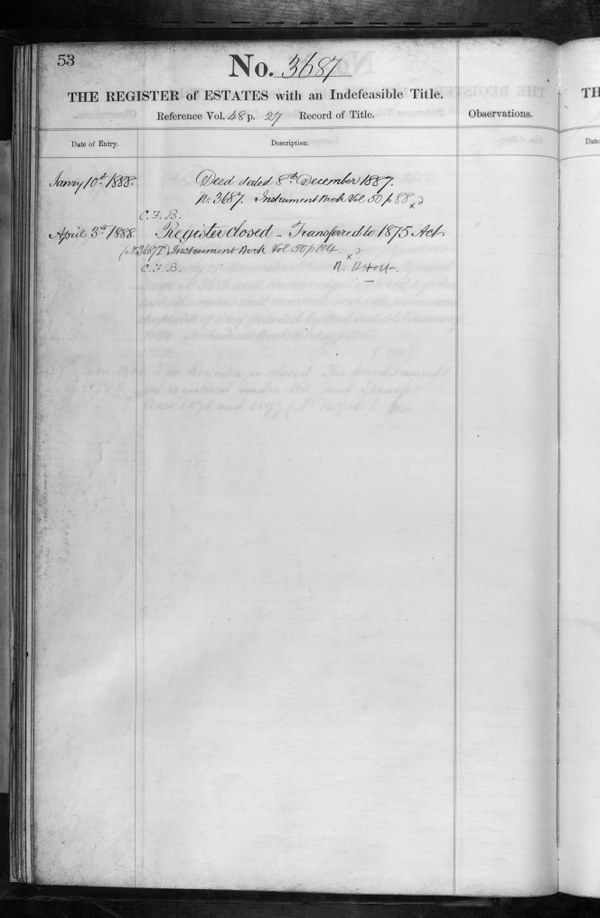 53
No. 3687
THE REGISTER of ESTATES with an Indefeasible Title.
Reference Vol. 48 p. 27 Record of Title.
Observations.
Date of Entry.
Description.
Janry 10th 1888.
Deed dated 8th December 1887.
No. 3687. Instrument Book Vol 50 p 88
C. F. B.
April 3rd 1888
Register closed - Transferred to 1875 Act
Instrument Book Vol 50 p
C. F. B.
TH
Date